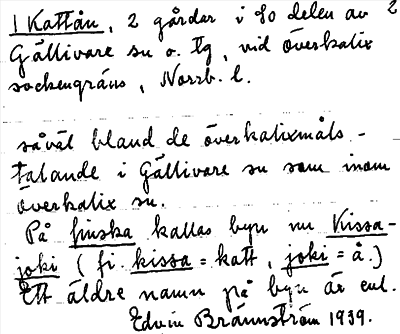 1 Kattån, 2 gårdar i SO delen av 2
Gällivare sn o. tg, vid överkalix
sockengräns, Norrb. l.
såväl bland de överkalixmåls-
talande i Gällivare sn som inom
överkalix sn.
På finska kallas byn nu Kissa-
joki (fi. kissa = katt, joki = å.)
Ett äldre namn på byn är enl.
Edvin Brännström 1939.